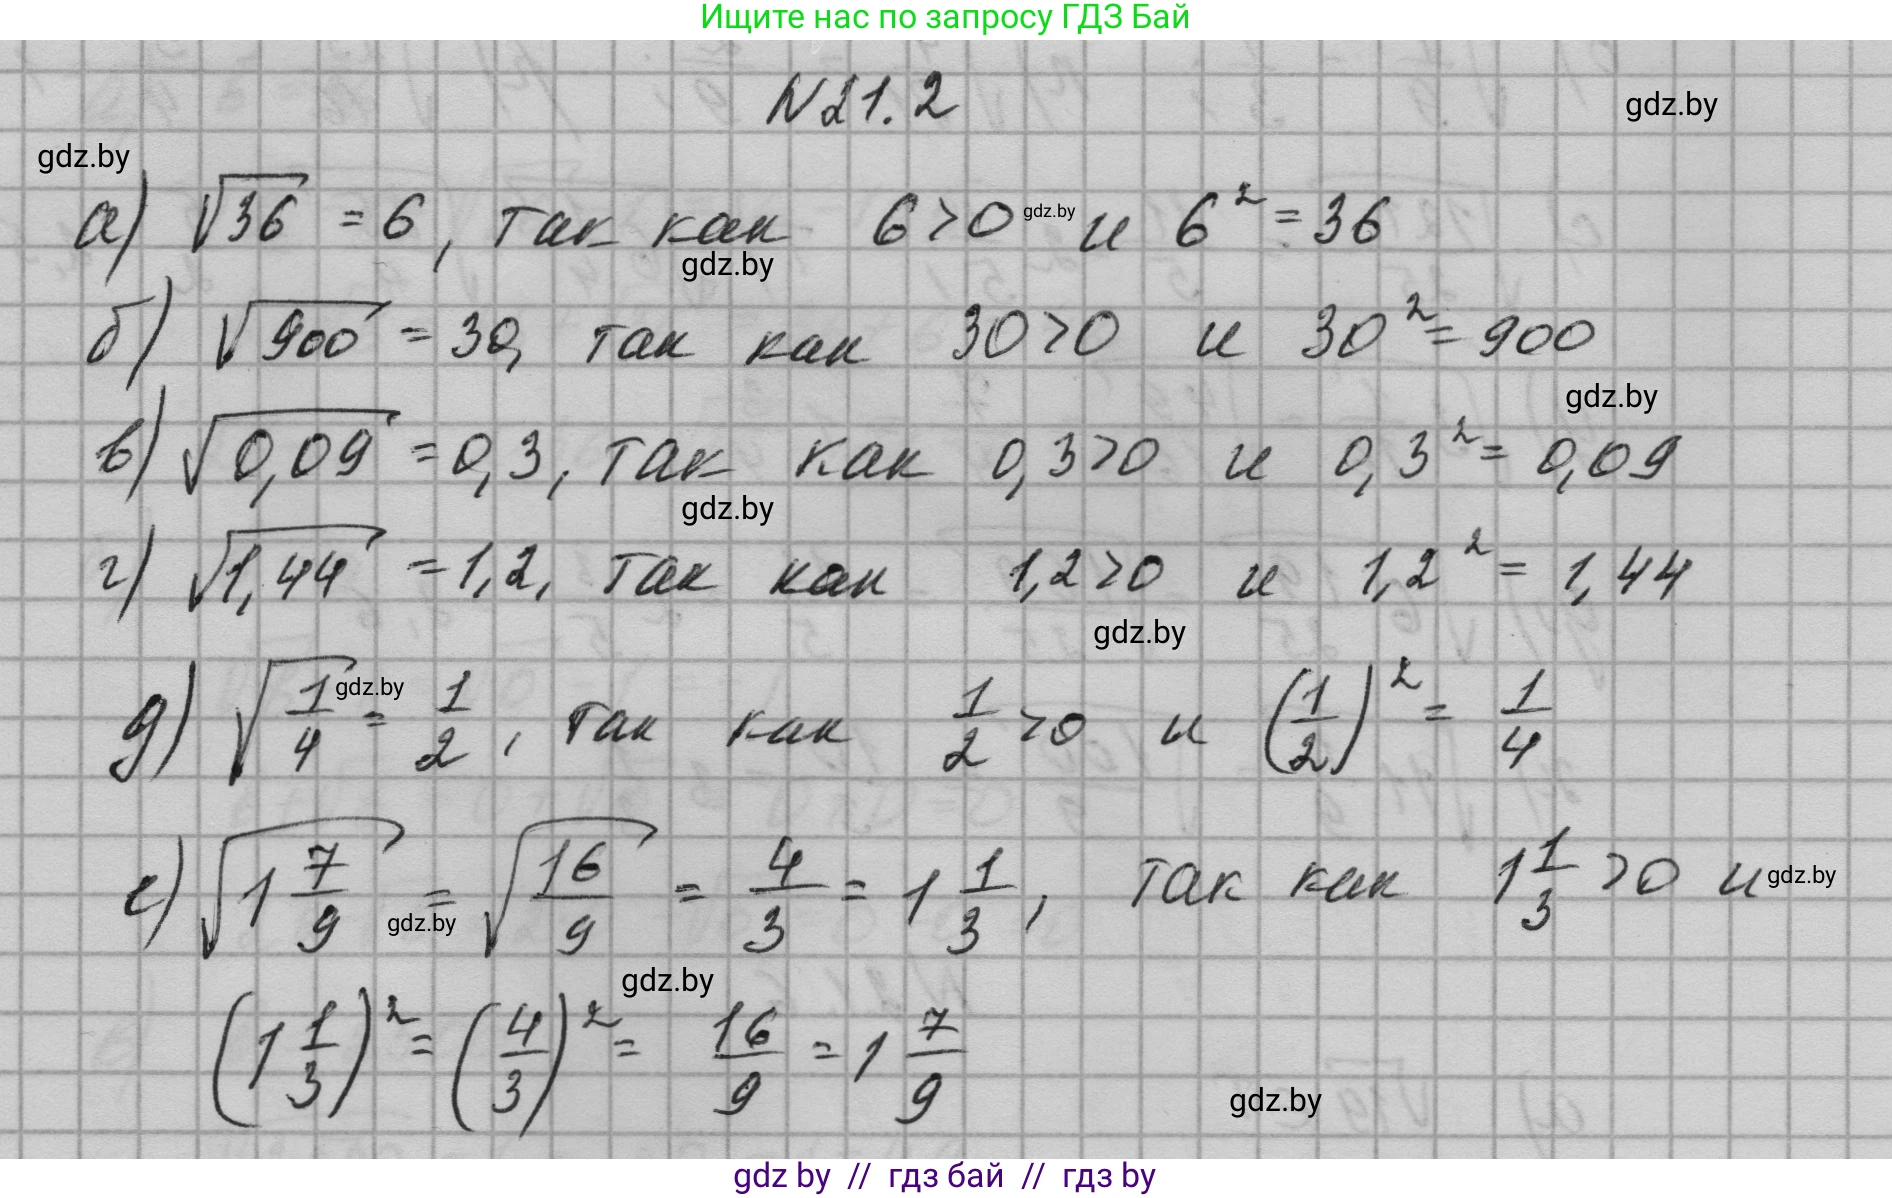 Ищите нас по запросу ГДЗ Бай
N21.2
gdz.by
gdz.by
а) √36 = 6, так как 6>0 gdz.by и 6² = 36
gdz.by
б) √900 = 30, так как 30>0 и 30² = 900
gdz.by
в) √0,09 = 0,3, так как 0,3>0 и 0,3² = 0,09
gdz.by
г) √1,44 = 1,2, так как 1,2>0 и 1,2² = 1,44
gdz.by
д) √(1/4) gdz.by = 1/2, так как 1/2 >0 и (1/2)² = 1/4
е) √(1 7/9) gdz.by = √(16/9) = 4/3 = 1 1/3, так как 1 1/3 >0 и gdz.by
gdz.by
(1 1/3)² = (4/3)² = 16/9 = 1 7/9
gdz.by
gdz by // гдз бай // гдз by